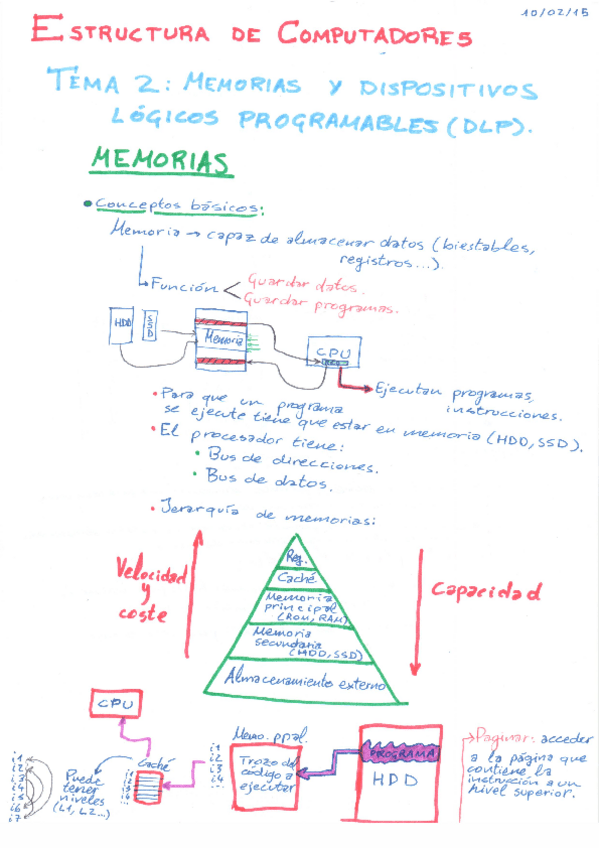 10/02/15
ESTRUCTURA DE COMPUTADORES
TEMA 2: MEMORIAS Y DISPOSITIVOS
LÓGICOS PROGRAMABLES (DLP).
MEMORIAS
• Conceptos básicos:
Memoria → capaz de almacenar datos (biestables,
registros...).
Función
Guardar datos.
Guardar programas.
HDD
SSD
Memoria
CPU
Ejecutan programas,
instrucciones.
• Para que un programa
se ejecute tiene que estar en memoria (HDD, SSD).
• El procesador tiene:
• Bus de direcciones.
• Bus de datos.
• Jerarquía de memorias:
Velocidad
y
coste
Reg.
Caché
Memoria
principal
(ROM, RAM)
Memoria
secundaria
(HDD, SSD)
Almacenamiento externo
Capacidad
CPU
Caché
Puede
tener
niveles
(L1, L2...)
Memo. ppal.
Trozo del
código a
ejecutar
PROGRAMA
HDD
Paginar: acceder
a la página que
contiene la
instrucción a un
nivel superior.
i1
i2
i3
i4
i5
i6
i7
i1
i2
i3
i4